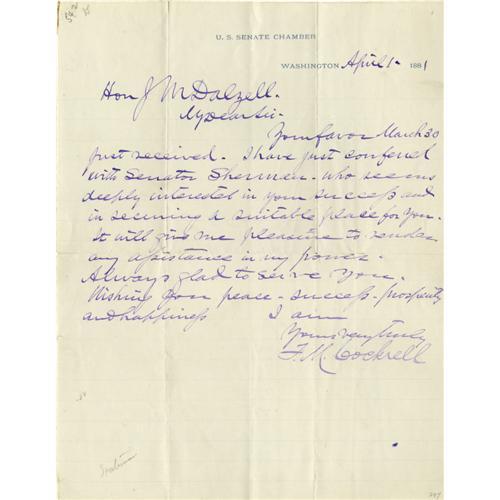 U. S. SENATE CHAMBER
WASHINGTON April 1 - 1881
Hon J M Dalzell.
My dear Sir.
Your favor March 30
just received. I have just conferred
with Senator Sherman. who seems
deeply interested in your success and
in securing a suitable place for you.
It will give me pleasure to render
any assistance in my power.
Always glad to serve you.
Wishing you peace - success - prosperity
and happiness I am
Yours very truly
F. M. Cockrell